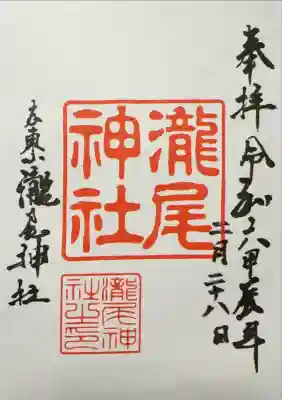 奉拝 令和六甲辰年
二月二十八日
瀧尾
神社
瀧尾神
社之印
瀧尾神社